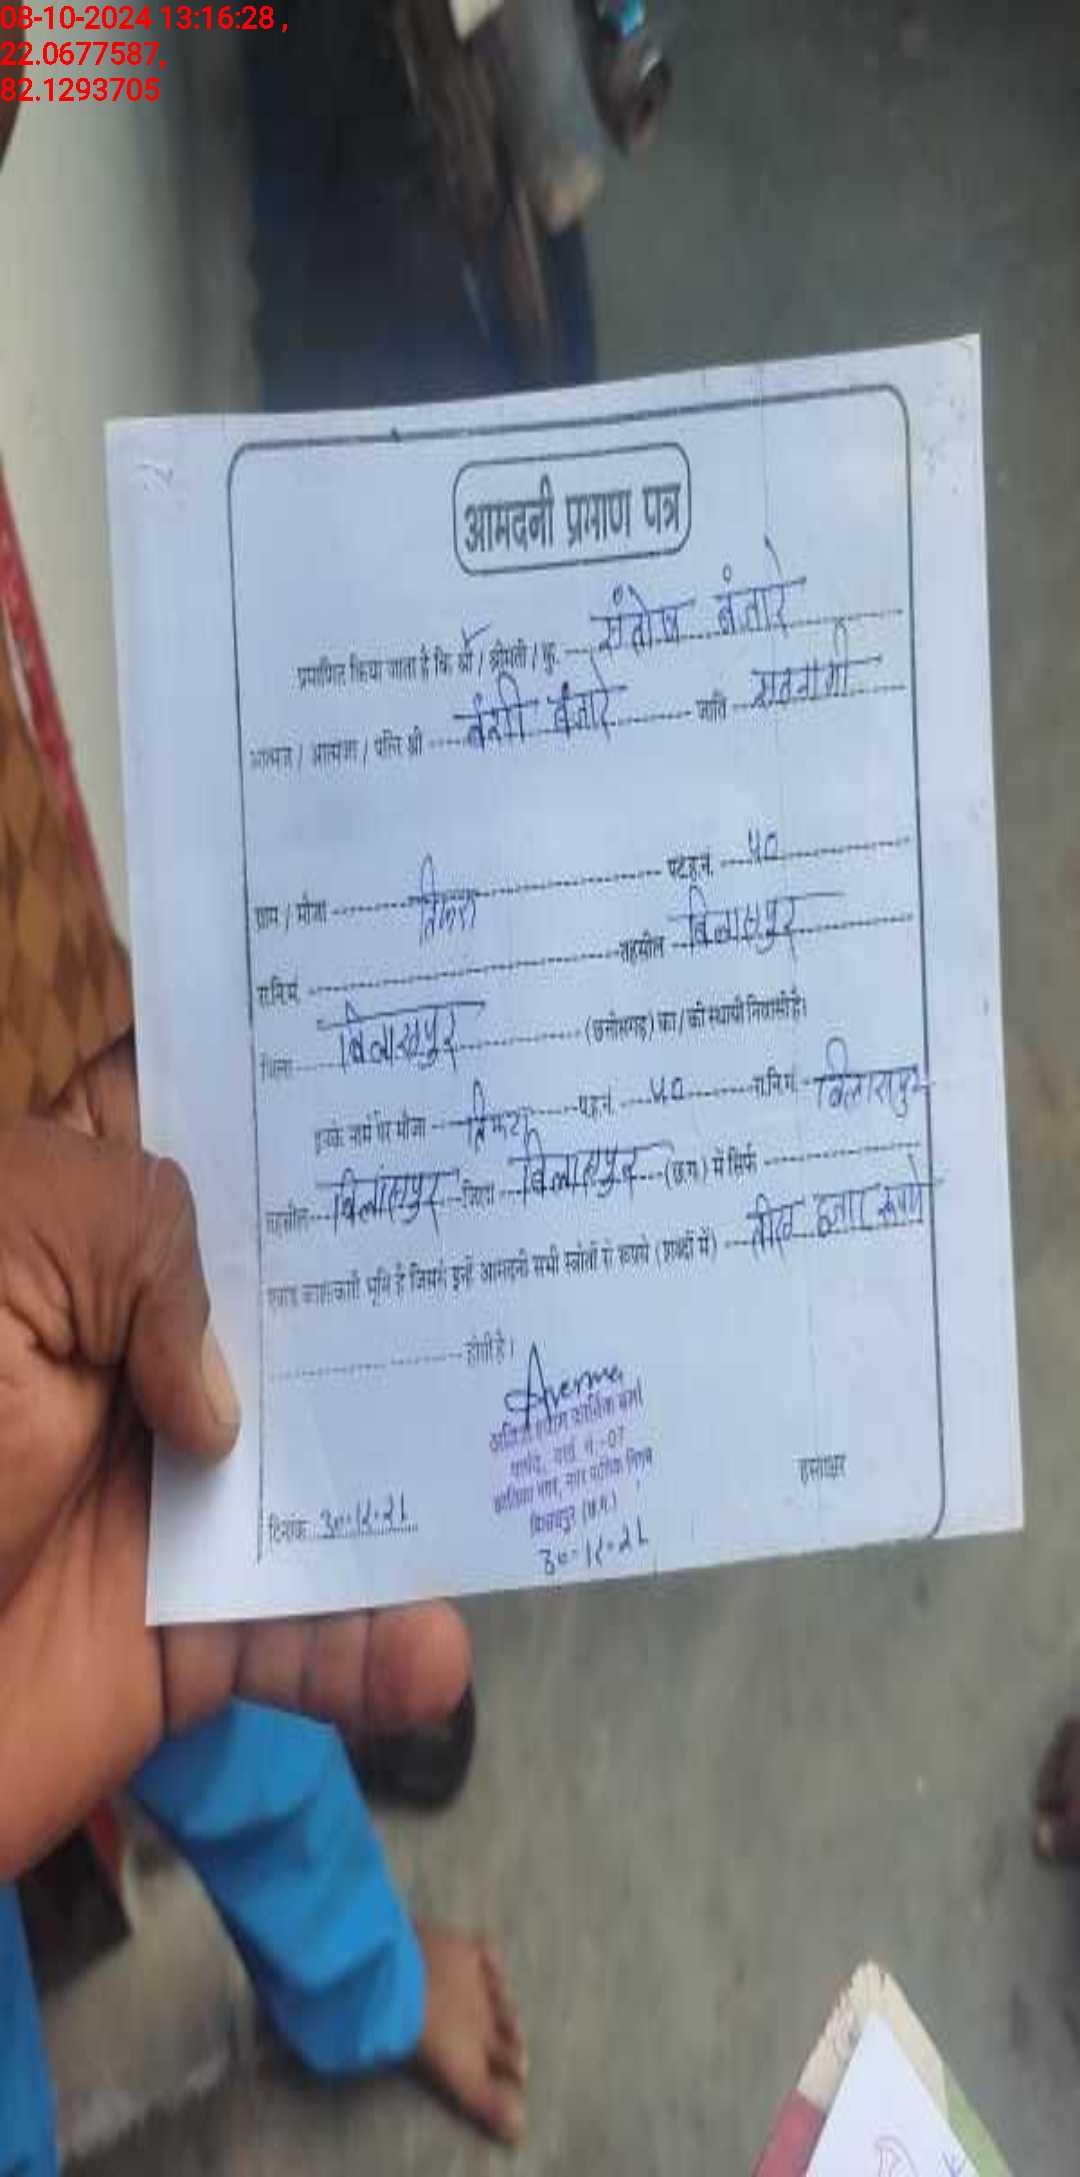 08-10-2024 13:16:28 ,
22.0677587,
82.1293705
आमदनी प्रमाण पत्र
प्रमाणित किया जाता है कि श्री / श्रीमती / कु. संतोष बंजारे
आत्मज / आत्मजा / पति श्री बंशी बंजारे जाति सतनामी
ग्राम / मौजा तिफरा पटह.नं. 40
रा.नि.मं. तहसील बिलासपुर
जिला बिलासपुर (छत्तीसगढ़) का / की स्थायी निवासी है।
इनके नाम पर मौजा तिफरा प.ह.नं. 40 रा.नि.मं. बिलासपुर
तहसील बिलासपुर जिला बिलासपुर (छ.ग.) में सिर्फ
एकड़ काश्तकारी भूमि है जिससे इन्हें आमदनी सभी स्त्रोतों से रूपये (शब्दों में) तीस हजार रूपये
होती है।
पार्षद, वार्ड नं.-07
नगर पालिक निगम
बिलासपुर (छ.ग.)
हस्ताक्षर
दिनांक